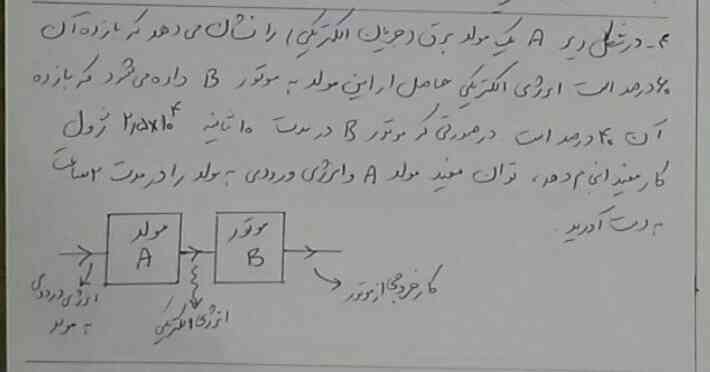 ۴- در شکل زیر A یک مولد برق (جریان الکتریکی) را نشان می دهد که بازده آن
۶۰ درصد است انرژی الکتریکی حاصل از این مولد به موتور B داده می شود که بازده
آن ۴۰ درصد است در صورتی که موتور B در مدت ۱۰ ثانیه ۲٫۵×۱۰^۴ ژول
کار مفید انجام دهد، توان مفید مولد A و انرژی ورودی به مولد را در مدت ۲ ساعت
به دست آورید.
مولد
A
موتور
B
انرژی ورودی
به مولد
انرژی الکتریکی
کار خروجی از موتور